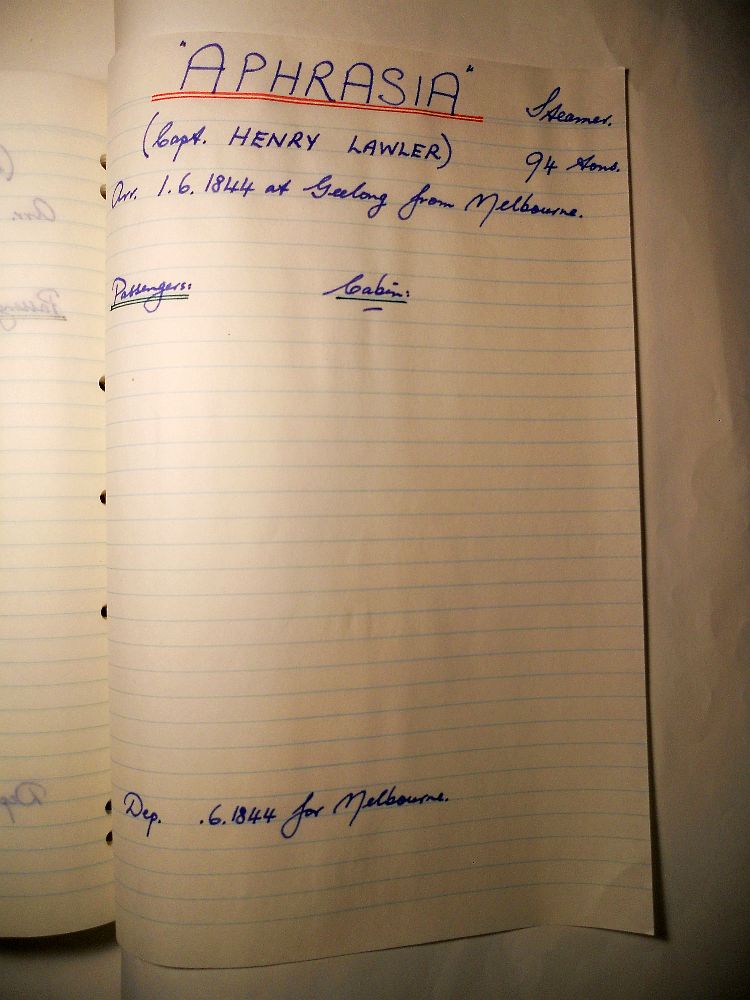 "APHRASIA"
Steamer.
(Capt. HENRY LAWLER)
94 tons.
Arr. 1.6.1844 at Geelong from Melbourne.
Passengers: Cabin:
Dep. .6.1844 for Melbourne.